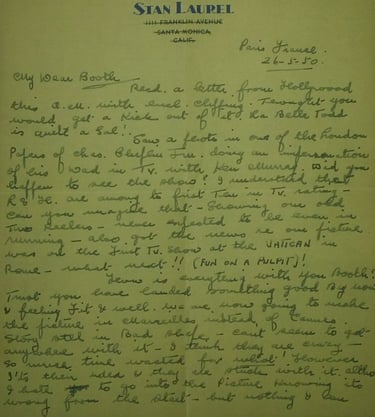 STAN LAUREL
1111 FRANKLIN AVENUE
SANTA MONICA
CALIF.
Paris France.
26-5-50.
My Dear Booth.
Recd. a letter from Hollywood
this A.M. with encl. clipping. Thought you
would get a Kick out of it. La Belle Toad
is quite a Gal!.
Saw a photo in one of the London
Papers of Chas. Chaplin Jnr. doing an impersonation
of his Dad in TV. with Ken Murray. Did you
happen to see the show? I understand that
L & H. are among to first Ten in TV. rating -
can you imagine that - Showing our old
Two Reelers - never expected to be even in
running - also got the news re one picture
was on the first TV. show at the VATICAN in
Rome - what next!! (FUN ON A PULPIT)!
How is everything with you Booth?
Trust you have landed something good By now
& feeling fit & well. we are now going to make
the picture in Marseilles instead of Cannes -
Story still in Bad shape - can't seem to get
anywhere with it - I think they are crazy -
So much time wasted for what! However
it's their idea & they're stuck with it, altho
I hate to go into the Picture Knowing its
wrong from the start - but nothing I can